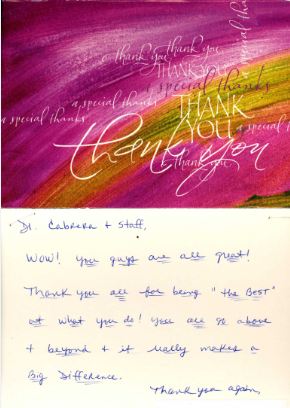 thank you
thank you
THANK YOU
a special thanks
a special thanks
a special thanks
THANK
YOU
a special thanks
a special thanks
thank you
thank you
Dr. Cabrera + Staff,
WOW! you guys are all great!
Thank you all for being "the BEST"
at what you do! you all go above
+ beyond + it really makes a
Big Difference.
Thank you again,